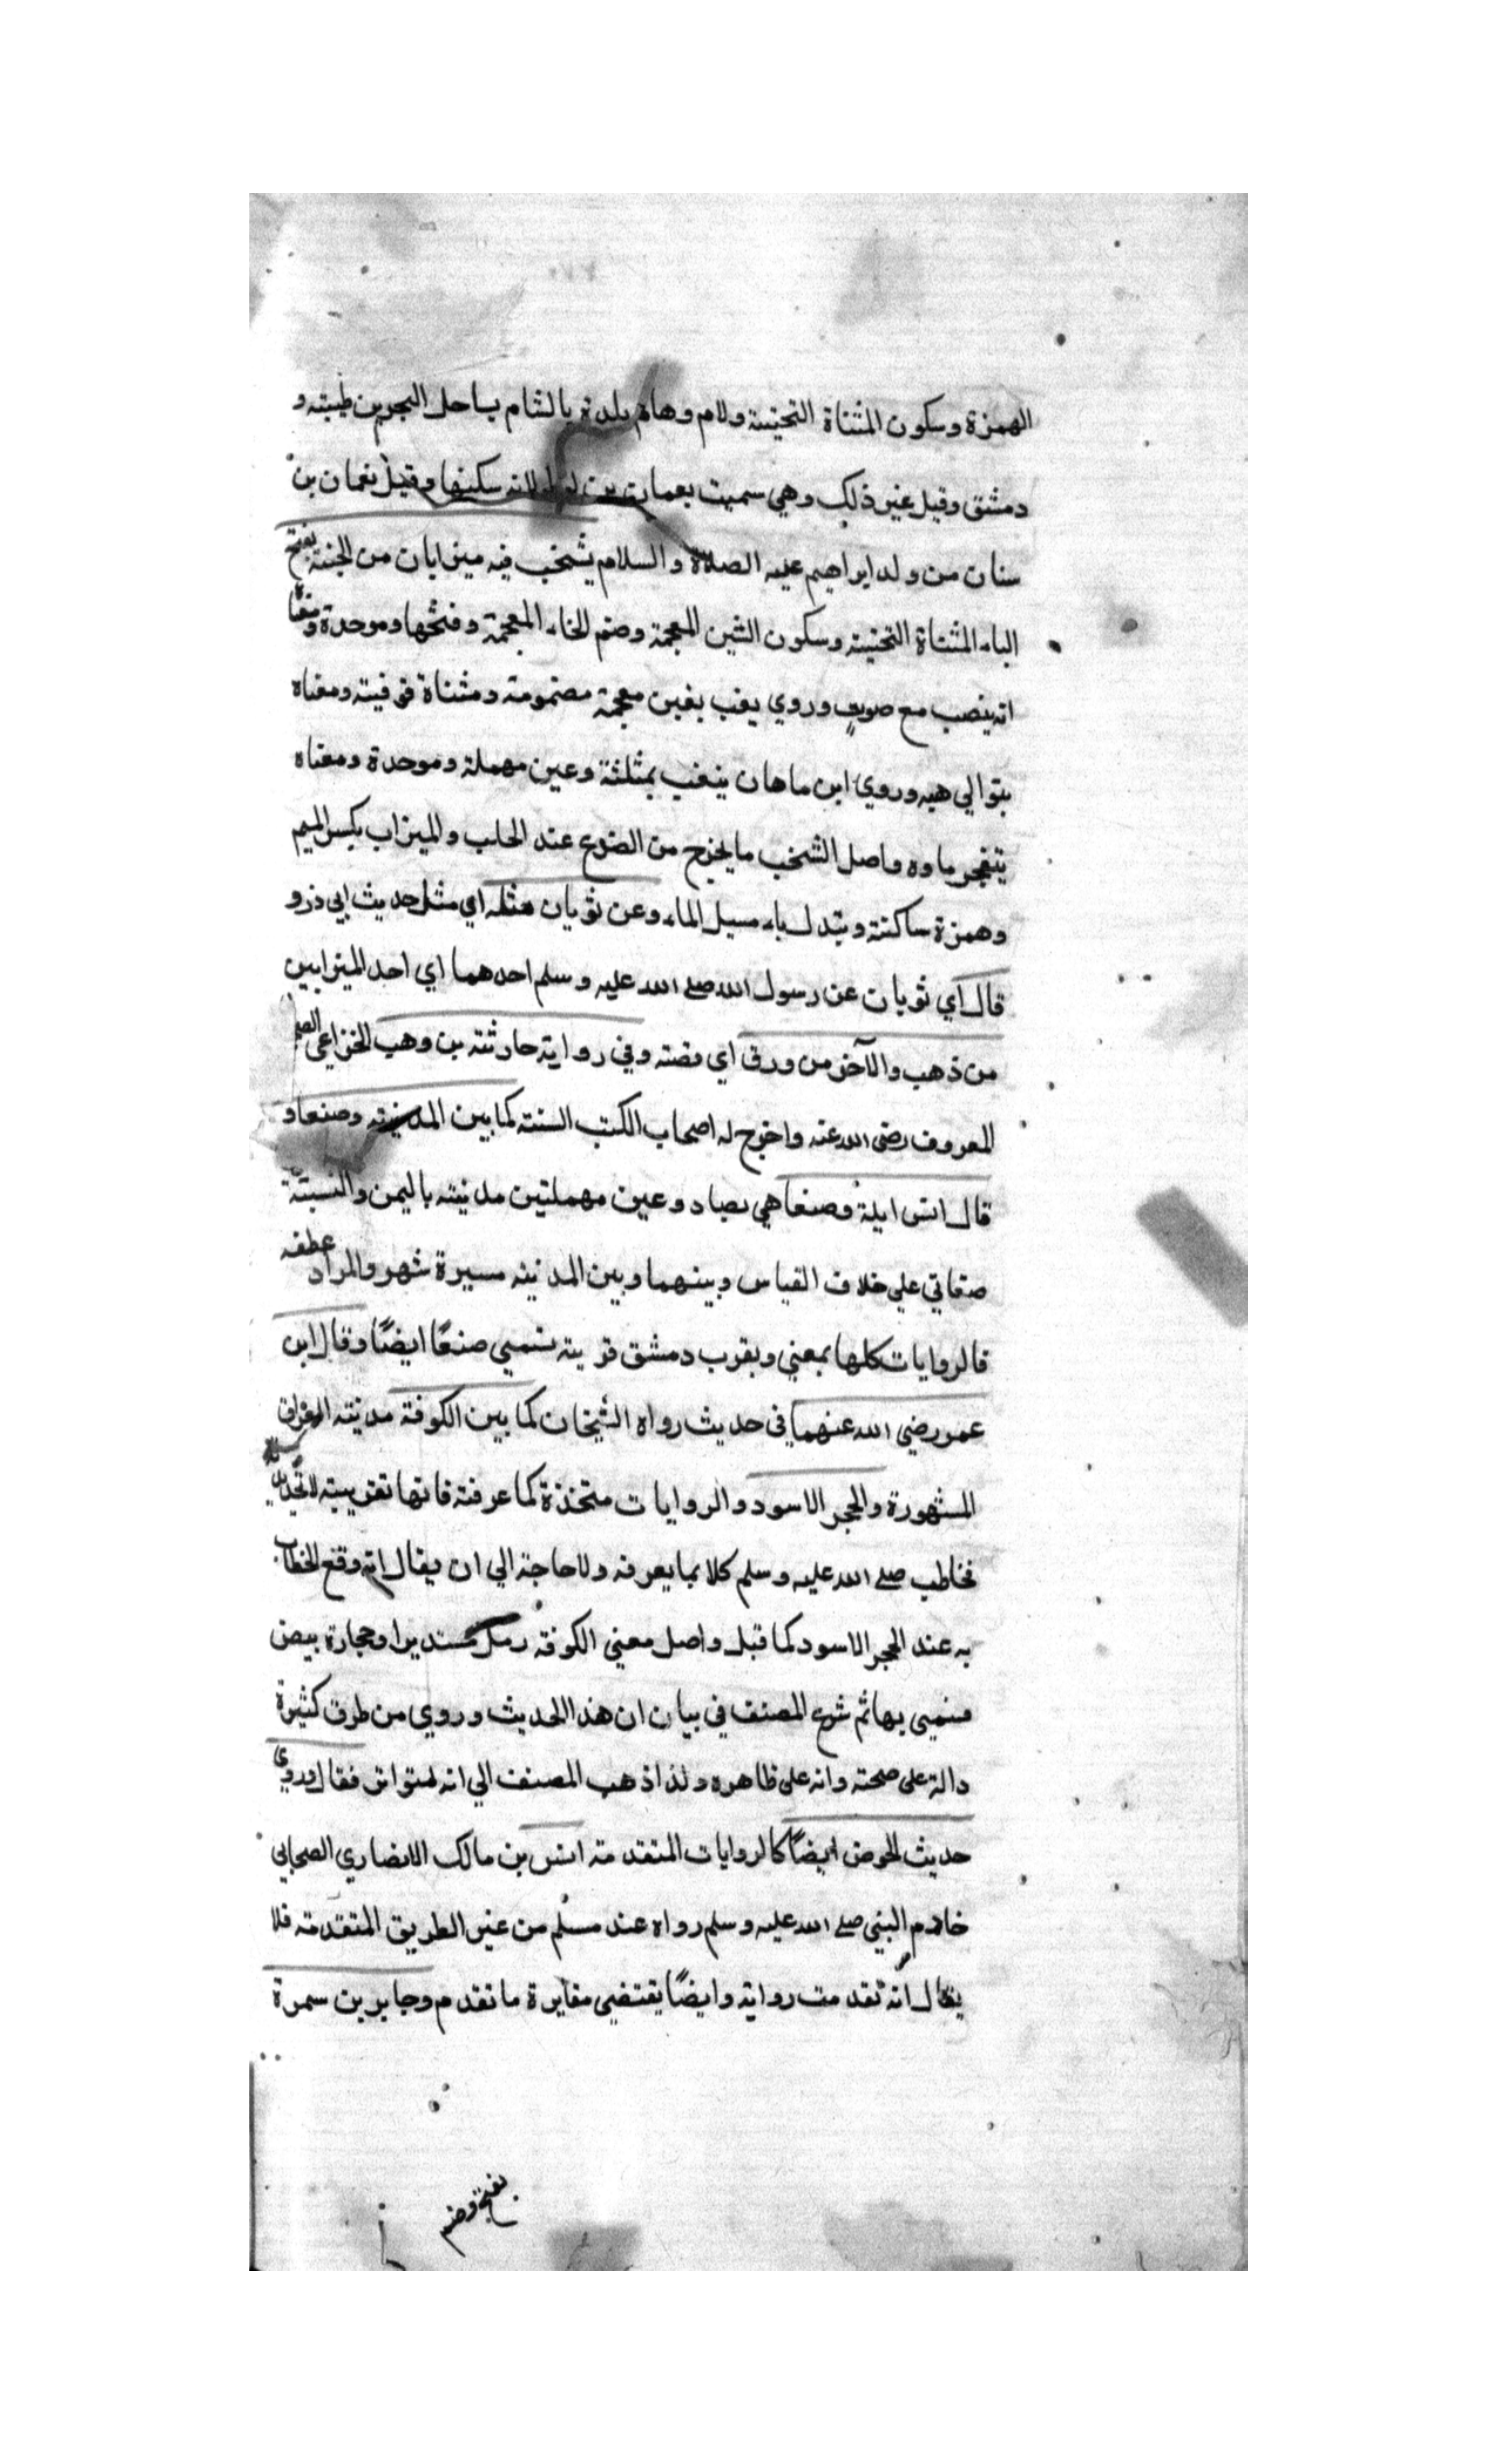 الهمزة وسكون المثناة التحتية ولام وهاء بلدة بالشام بساحل البحر بين طيبته و
دمشق وقيل غير ذلك وهي سميت بعمان بن لوط لانه سكنها وقيل نعمان بن
سنان من ولد ابراهيم عليه الصلاة والسلام يشخب فيه ميزابان من الجنة بفتح
الباء المثناة التحتية وسكون الشين المعجمة وضم الخاء المعجمة وفتحها وموحدة ومعناه
انه ينصب مع صوت وروي يغب بغين معجمة مضمومة ومثناة فوقيته ومعناه
بتوالي هيه وروي ابن ماهان ينعب بمثلثة وعين مهملة وموحدة ومعناه
يتفجر ماوه واصل الشخب ما يخرج من الضرع عند الحلب والميزاب بكسر الميم
وهمزة ساكنة وتبدل ياء مسيل الماء وعن ثوبان مثله اي مثل حديث ابي ذر و
قال اي ثوبان عن رسول الله صلى الله عليه وسلم احدهما اي احد الميزابين
من ذهب والآخر من ورق اي فضته وفي رواية حارثته بن وهب الخزاعي
المعروف رضى الله عنه واخرج له اصحاب الكتب الستة كما بين المدينة وصنعا و
قال انس ايلة وصنعا هي بصاد وعين مهملتين مدينته باليمن والنسبة
صنعاني على خلاف القياس وبينهما وبين المدينه مسيرة شهر والمراد عطفه
فالروايات كلها بمعني وبقرب دمشق قريته تسمي صنعًا ايضًا وقال ابن
عمر رضي الله عنهما في حديث رواه الشيخان كما بين الكوفة مدينته العراق
المشهورة والحجر الاسود والروايات متخذة كما عرفته فانها تقريبيته لا
فخاطب صلى الله عليه وسلم كلا بما يعرفه ولا حاجة الي ان يقال انه وقع الخطاب
به عند الحجر الاسود كما قيل واصل معني الكوفة رمل مستديرا وحجارة بيض
فسمي بها ثم شرع المصنف في بيان ان هذا الحديث وروي من طرق كثيرة
دالة على صحته وانه على ظاهره ولذا ذهب المصنف الي انه متواتر فقال وروي
حديث الحوض ايضًا كالروايات المتقدمة انس بن مالك الانصاري الصحابي
خادم النبي صلى الله عليه وسلم رواه عند مسلم من غير الطريق المتقدمة فلا
يقال انه تقدمت رواية وايضًا يقتضي مغايرة ما تقدم وجابر بن سمرة
بفتح وضم